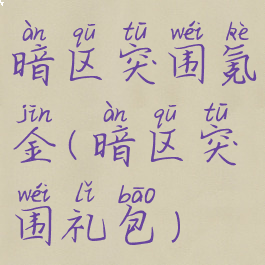 àn qū tū wéi kè
暗区突围氪
jīn àn qū tū
金(暗区突
wéi lǐ bāo
围礼包)